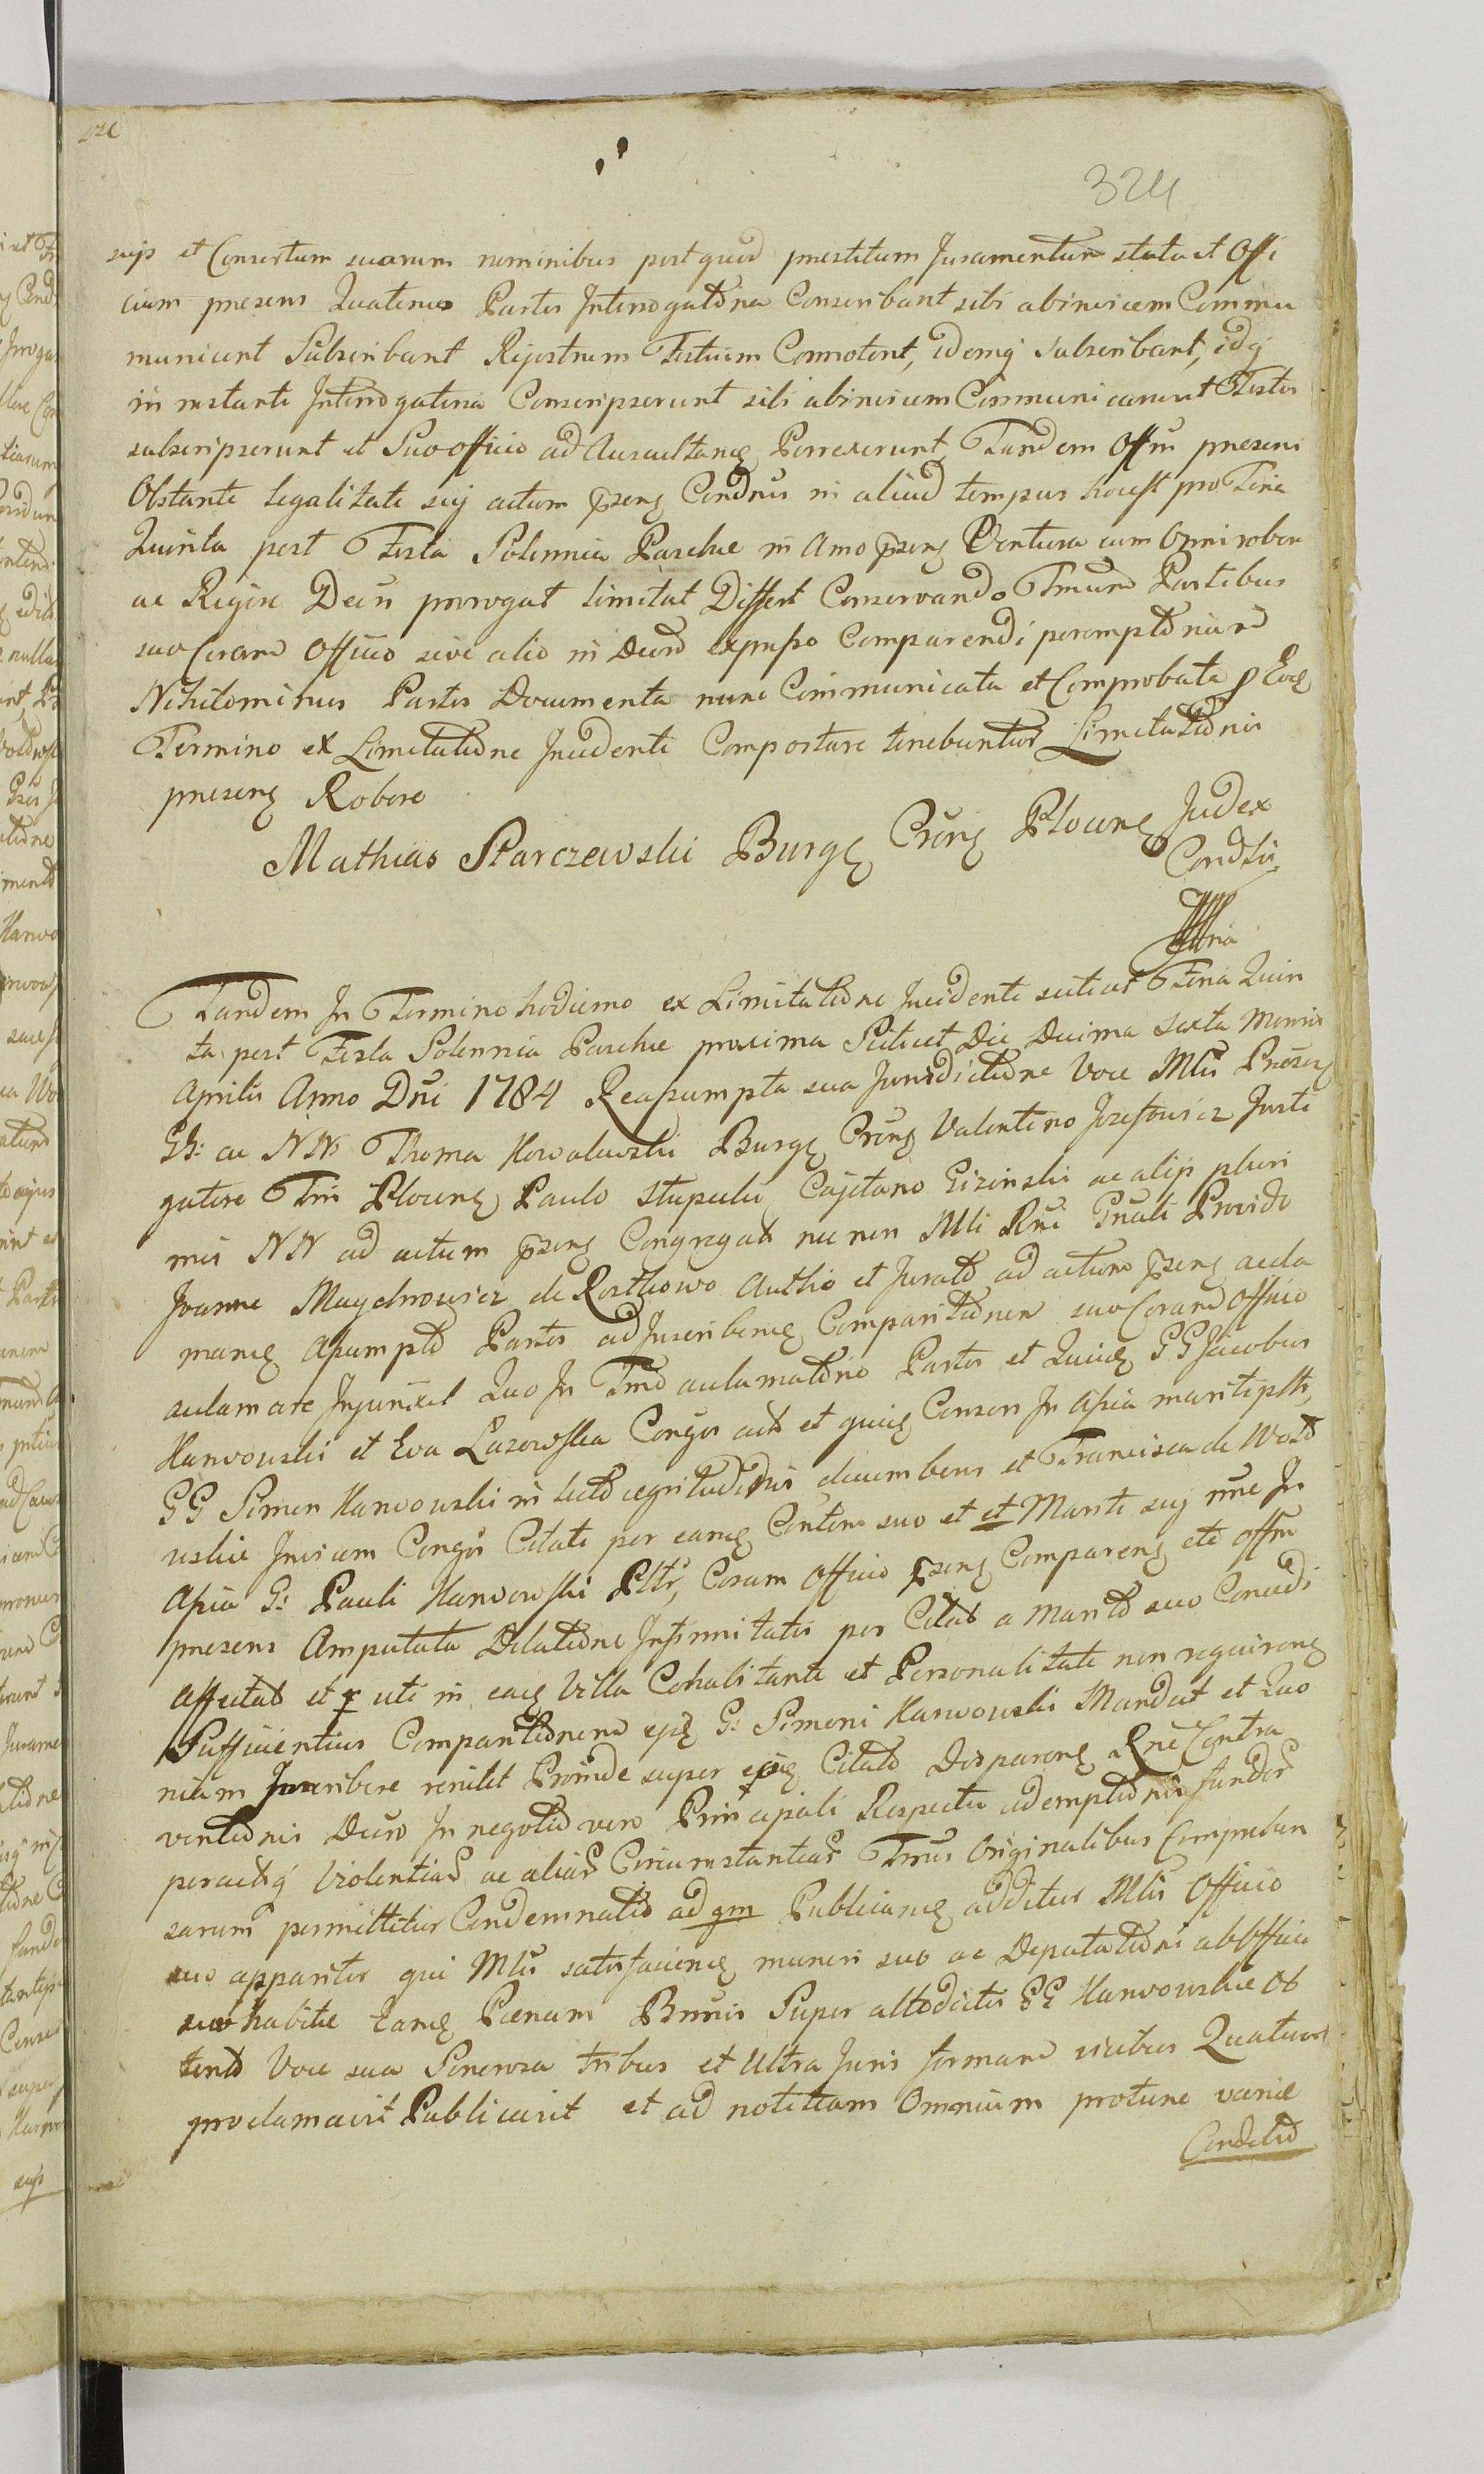 324
suis et Consortum suarum nominibus post quod praestitum Juramentum statuit Offi
cium praesens Quatenus Partes Interrogatoria Conscribant sibi abinvicem Commu
municent Subscribant Rejestrum Testium Connotent, idemq subscribant, idq
in instanti Interrogatoria Conscripserunt sibi abinvicem Communicarunt Testes
subscripserunt et Suo officio ad Auscultang Porrexerunt Tandem Offm praesens
Obstante legalitate sug actum psens Condnis in aliud tempus hocest pro Feria
Quinta post Festa Solennia Paschae in Anno psens Ventura cum omni robore
ac Rigore Decti prorogat limitat Differt Conservando Tmum Partibus
suo Coram Officio sive alio in Decro expresso Comparendi peremptorium
Nihilominus Partes Documenta nunc Communicata et Comprobata p Eod
Termino ex Limitatione Incidenti Comportare tenebuntur Limitationis
praesens Robore
Mathias Starczewski Burgs Crens Plocens Judex
Condlis
Tandem In Termino hodierno ex Limitatione Incidenti scilicet Feria Quin
ta post Festa Solennia Paschae proxima Scilicet Die Decima Sexta Mensis
Aprilis Anno Dni 1784 Reassumpta sua Jurisdictione Voce Mlis Praesens
Gb: ac NN Thoma Kowalewski Burgs Crens Valentino Jozefowicz Insti
gatore Tris Plocens Paulo Stupecki Cajetano Gizinski ac alijs pluri
mis NN ad actum psens Congregats nec non Mli Rni Gnali Provido
Joanne Maychrowicz de Rostkowo Authco et Jurato ad actum psens accla
mans Assumpto Partes ad Inscribens Comparitionem suo Coram Officio
aclamare Injunxit Quo In Tmo aclamatorio Partes et Quid GG Jacobus
Karwowski et Eva Lazowska Conges act et quid Consors In Assia mariti psts,
GG Simon Karwowski in lecto aegritudinis decumbens et Francisca de Wosto
wskie Invicem Conges Citati per eand Contem suo et et Mariti sug nne In
Assia G: Pauli Karwowski Pltr, Coram Officio psens Comparens etc Offm
praesens Amputata Dilatione Infirmitatis per Citat a Marito suo Concedi
Affectat et uti in eadq Villa Cohabitante et Personalitate non requirens
Sufficientius Comparitionem ejsq G: Simoni Karwowski Mandat et Quo
niam Inscribere renitet Proinde super Citato Disparens Rne Contra
ventionis Decro In negotio vero Principali Respectu ademptionis fundor
peractq Violentiar ac aliar Circumstantiar Tmis Originalibus Compreben
sarum permittitur Condemnatio ad qm Publicand additur Mlis Officio
suo apparitor qui Mlis satisfaciend muneri suo ac Deputationi abOfficio
suo habitae Eand Poenam Bnnis Super altodictis GG Karwowskie Ob
tent Voce sua Sonorosa tribus et Ultra Juris formam vicibus Quatuor
proclamavit Publicavit et ad notitiam Omnium protunc variae
Condetio